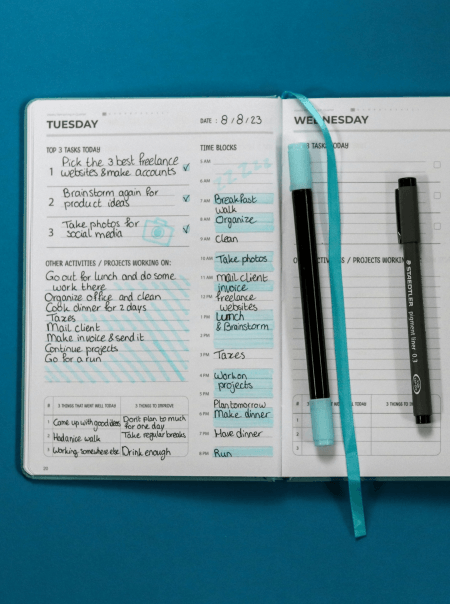 TUESDAY
DATE : 8/8/23
TOP 3 TASKS TODAY
1 Pick the 3 best freelance
websites & make accounts
2 Brainstorm again for
product ideas
3 Take photos for
social media
OTHER ACTIVITIES / PROJECTS WORKING ON:
Go out for lunch and do some
work there
Organize office and clean
Cook dinner for 2 days
Taxes
Mail client
Make invoice & send it
Continue projects
Go for a run
# 3 THINGS THAT WENT WELL TODAY 3 THINGS TO IMPROVE
1 Came up with good ideas Don't plan to much
for one day
2 Had a nice walk Take regular breaks
3 Working somewhere else Drink enough
TIME BLOCKS
5 AM
6 AM zzzz
7 AM Breakfast
walk
8 AM Organize
9 AM Clean
10 AM Take photos
11 AM Mail client
invoice
12 PM freelance
websites
1 PM Lunch
2 PM & Brainstorm
3 PM Taxes
4 PM Work on
5 PM projects
Plan tomorrow
6 PM Make dinner
7 PM Have dinner
8 PM Run
WEDNESDAY
TASKS TODAY
OTHER ACTIVITIES / PROJECTS WORKING
WELL TODAY 3 THINGS TO
1
2
3
STAEDTLER
pigment liner 0.3